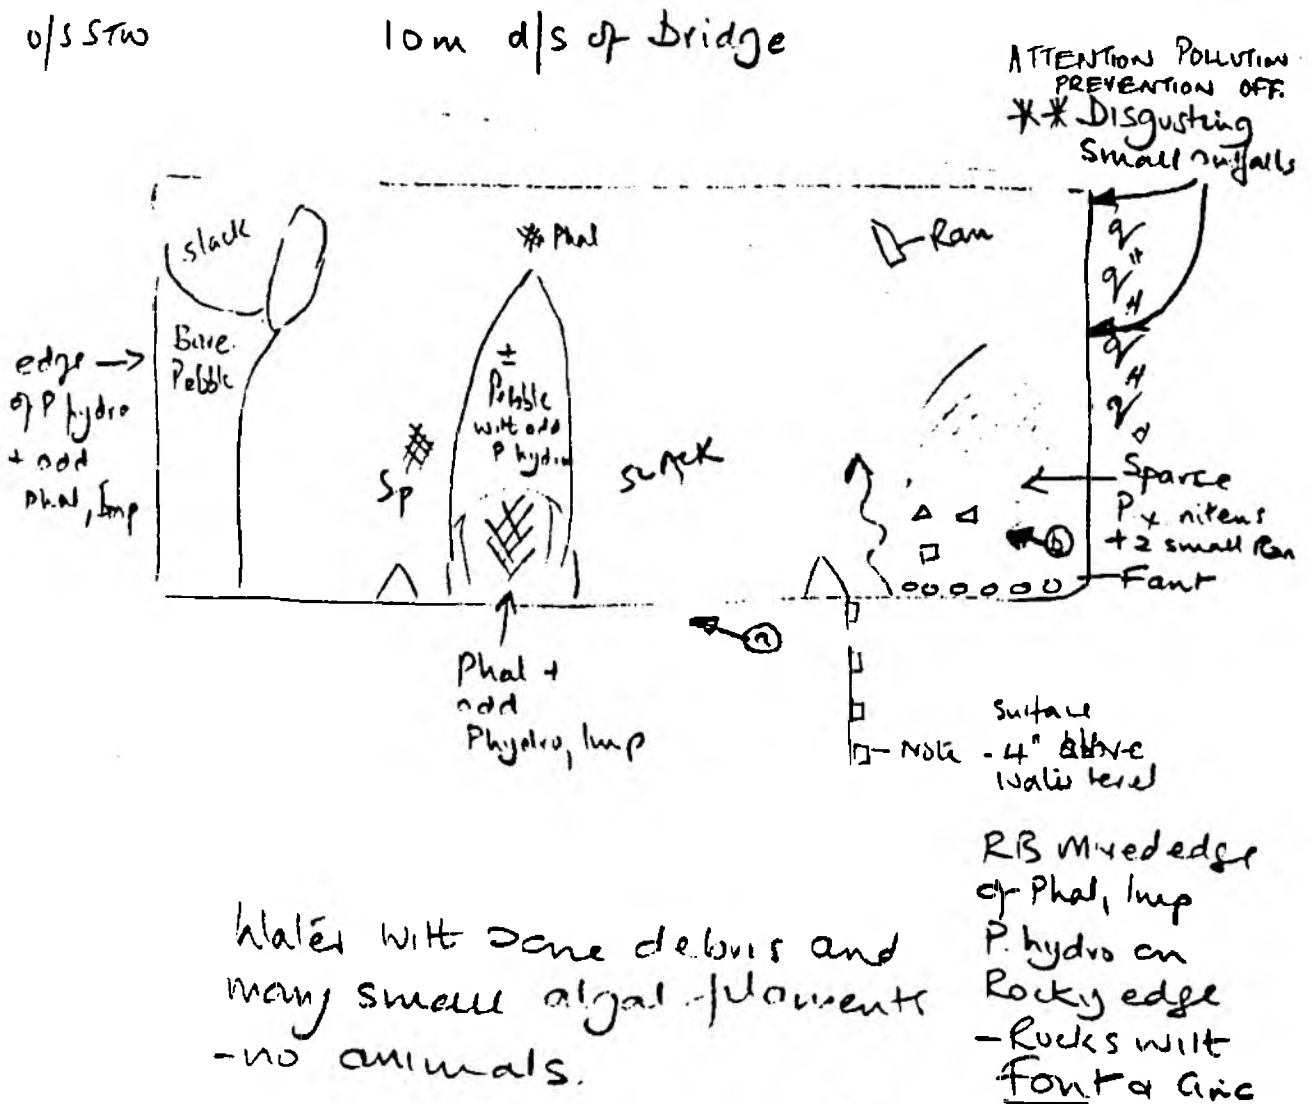 o/s STW
10m d/s of Bridge
ATTENTION POLLUTION
PREVENTION OFF.
** Disgusting
small outfalls
slack
Phal
Ran
Bare
Pebble
edge
of P hydro
+ odd
Phal, Imp
±
Pebble
with odd
P hydro
Sp
SLACK
Sparce
P x nitens
+ 2 small Ran
b
Font
a
Phal +
odd
P hydro, Imp
Note
Surface
- 4" above
Water level
RB Mixed edge
of Phal, Imp
P. hydro on
Rocky edge
- Rocks with
Font &
Water with some debris and
many small algal filaments
- no animals.